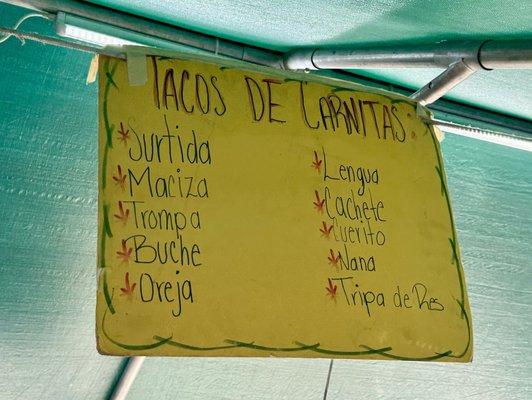 TACOS DE CARNITAS.
Surtida
Maciza
Trompa
Buche
Oreja
Lengua
Cachete
Cuerito
Nana
Tripa de Res